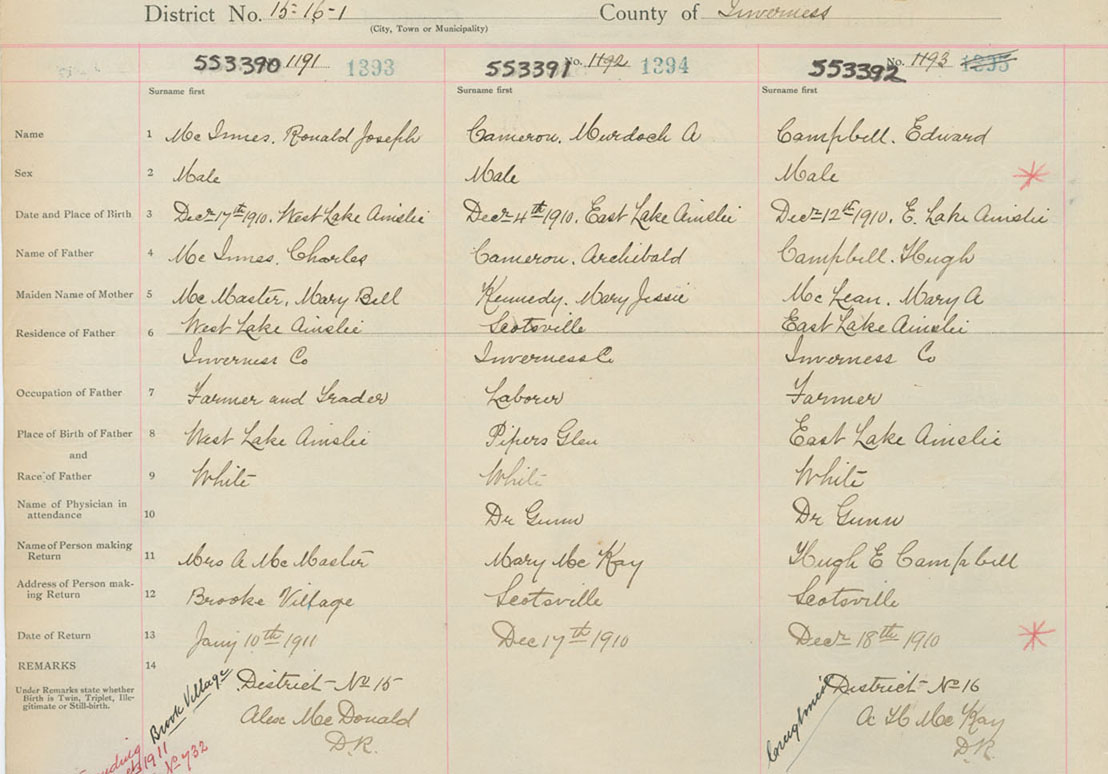 District No. 15-16-1 County of Inverness
(City, Town or Municipality)
553390 1191 1393 553391 No. 1192 1394 553392 No. 1193 1395
Surname first Surname first Surname first
Name 1 Mc Innes. Ronald Joseph Cameron. Murdoch A Campbell. Edward
Sex 2 Male Male Male
Date and Place of Birth 3 Decr 17th 1910. West Lake Ainslie Decr 4th 1910. East Lake Ainslie Decr 12th 1910. E. Lake Ainslie
Name of Father 4 Mc Innes. Charles Cameron. Archibald Campbell. Hugh
Maiden Name of Mother 5 Mc Master, Mary Bell Kennedy. Mary Jessie Mc Lean. Mary A
Residence of Father 6 West Lake Ainslie Scotsville East Lake Ainslie
Inverness Co Inverness Co Inverness Co
Occupation of Father 7 Farmer and Trader Laborer Farmer
Place of Birth of Father 8 West Lake Ainslie Pipers Glen East Lake Ainslie
and
Race of Father 9 White White White
Name of Physician in
attendance 10 Dr Gunn Dr Gunn
Name of Person making
Return 11 Mrs A Mc Master Mary Mc Kay Hugh E Campbell
Address of Person mak-
ing Return 12 Brooke Village Scotsville Scotsville
Date of Return 13 Jany 10th 1911 Dec 17th 1910 Decr 18th 1910
REMARKS 14
Under Remarks state whether
Birth is Twin, Triplet, Ille-
gitimate or Still-birth.
Brook Village District No 15 District No 16
Alex Mc Donald A H Mc Kay
D.R. D.R.
1911
No 732